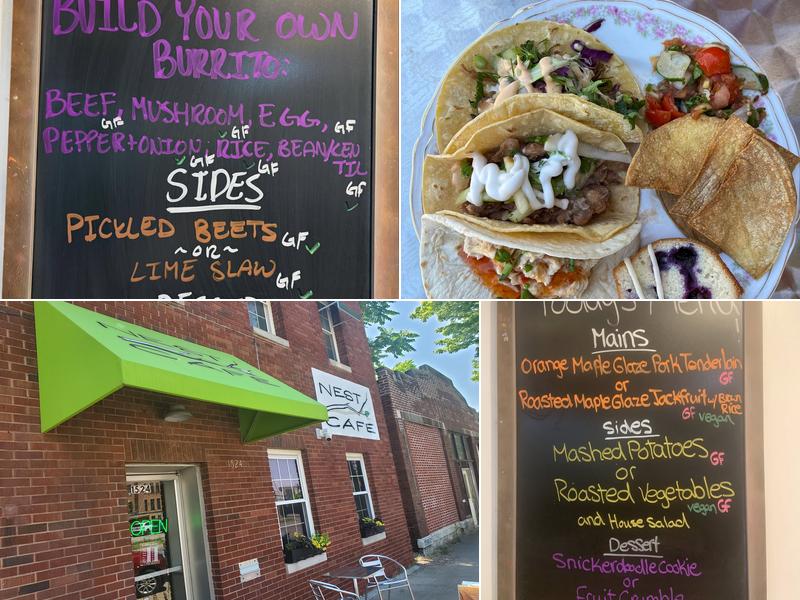 BUILD YOUR OWN
BURRITO:
BEEF, MUSHROOM, EGG,
GF GF GF
PEPPER+ONION, RICE, BEAN/KEN
TIL
GF GF GF
SIDES
PICKLED BEETS GF
~OR~
LIME SLAW GF
NEST CAFE
NEST
CAFE
1524
1524
OPEN
Today's Menu
Mains
Orange Maple Glaze Pork Tenderloin
GF
or
Roasted Maple Glaze Jackfruit w/Brown
Rice
GF vegan
Sides
Mashed Potatoes GF
or
Roasted Vegetables
vegan GF
and House Salad
Dessert
Snickerdoodle Cookie
or
Fruit Crumble